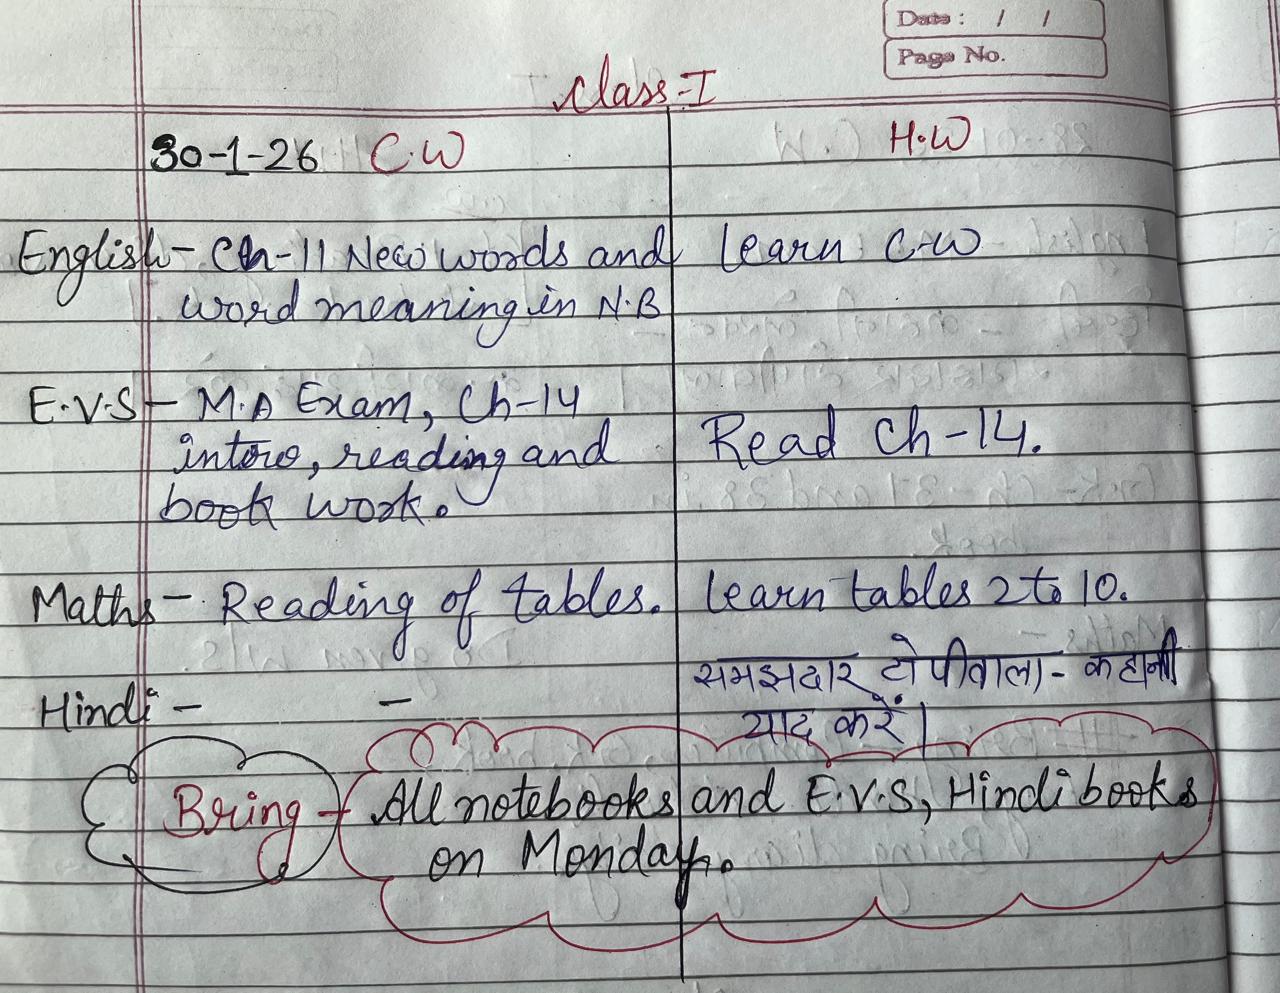 Date : / /
Page No.
Class-I
30-1-26 C.W H.W
English - Ch-11 New words and learn C.W
word meaning in N.B
E.V.S - M.A Exam, Ch-14
intro, reading and Read Ch-14.
book work.
Maths - Reading of tables. learn tables 2 to 10.
समझदार टोपीवाला - कहानी
Hindi - -
याद करें।
Bring - All notebooks and E.V.S, Hindi books
on Monday.